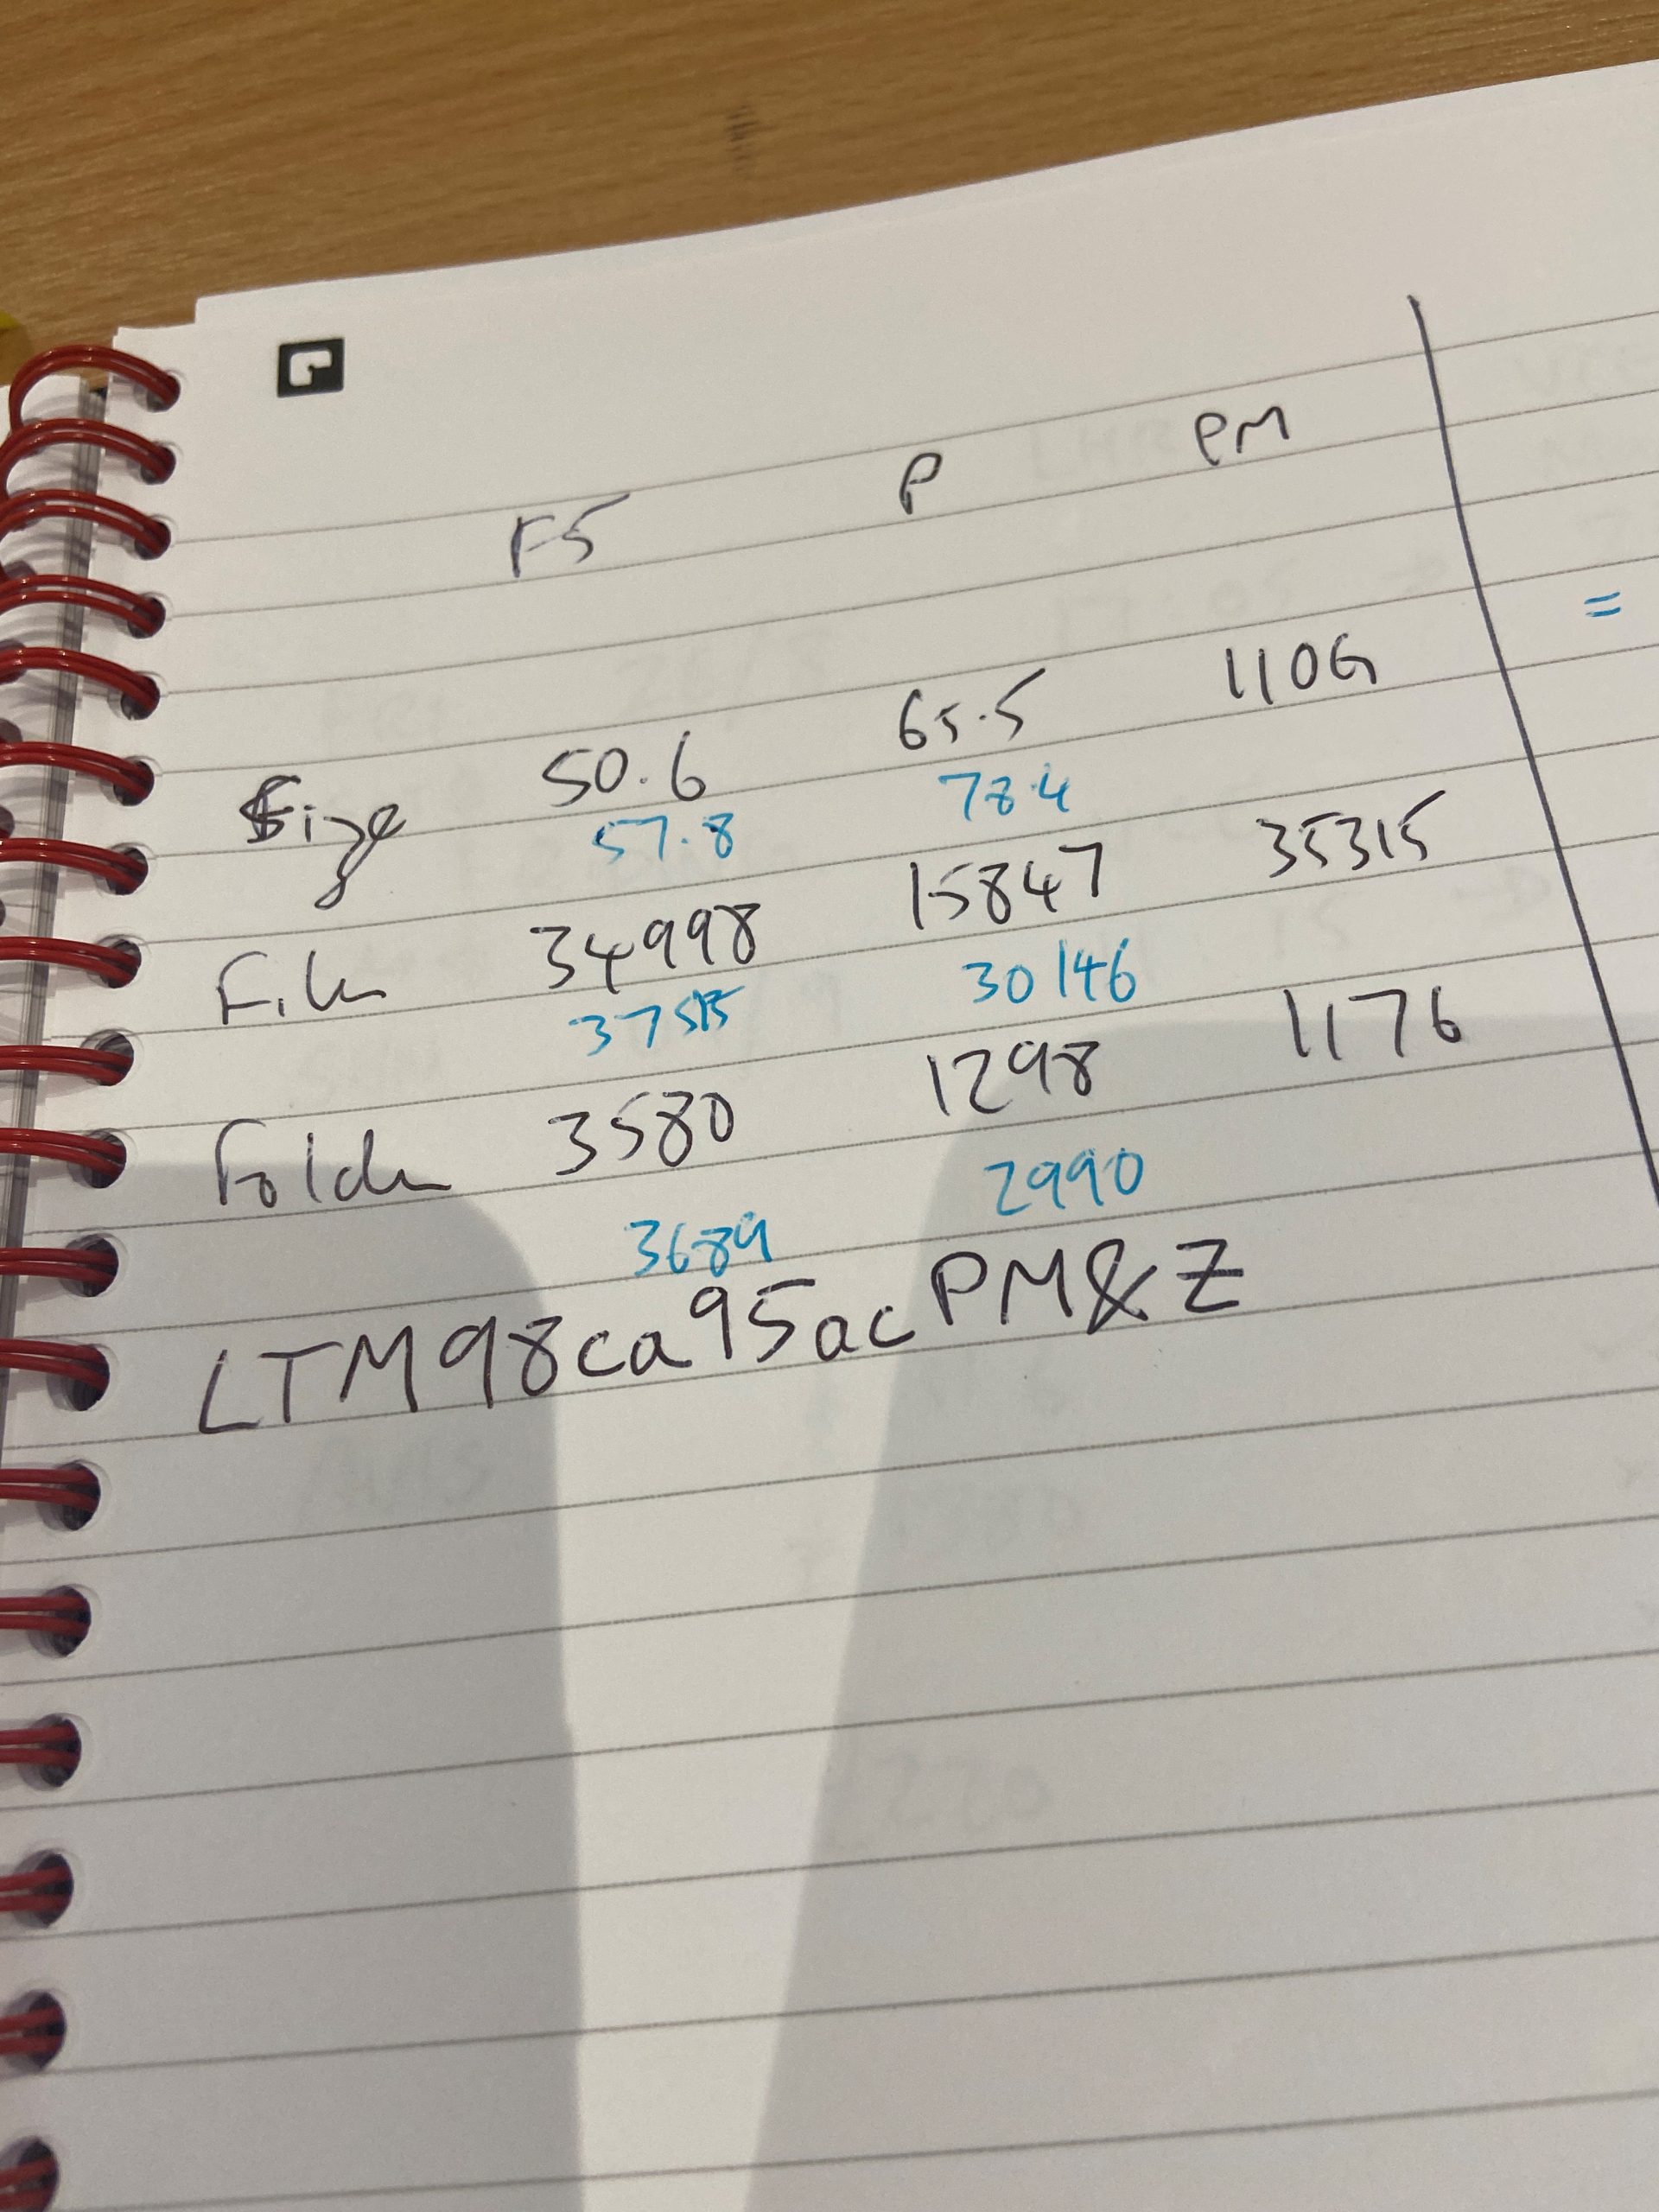 F5 P PM
Size 50.6 65.5 110G
57.8 78.4
Files 34998 15847 35315
30146
Folder 3580 1298 1176
3689 2990
LTM98ca95acPM&Z
=